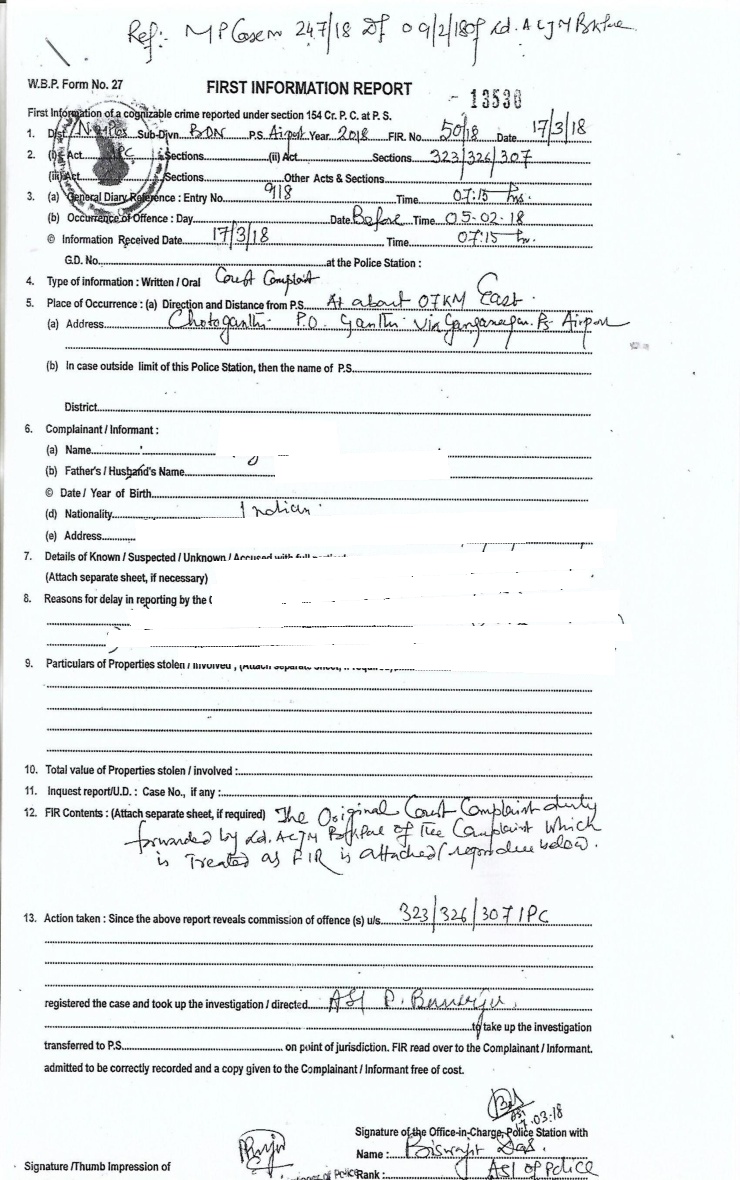 Ref:- M P Case no 247/18 Df 09/2/18 of Ld. ACJM Bkpur
W.B.P. Form No. 27
FIRST INFORMATION REPORT
- 13530
First Information of a cognizable crime reported under section 154 Cr. P. C. at P. S.
1. Dist. N 24 Pgs Sub-Divn. BDN P.S. Airport Year 2018 FIR. No. 50/18 Date 17/3/18
2. (i) Act IPC Sections (ii) Act Sections 323/326/307
(iii) Act Sections Other Acts & Sections
3. (a) General Diary Reference : Entry No. 918 Time 07:15 hrs.
(b) Occurrence of Offence : Day Date Before Time 05-02-18
© Information Received Date 17/3/18 Time 07:15 hr.
G.D. No. at the Police Station :
4. Type of information : Written / Oral Court Complaint
5. Place of Occurrence : (a) Direction and Distance from P.S. At about 07KM East.
(a) Address Chotoganthi P.O. Ganthi via Ganganagar. Ps Airport
(b) In case outside limit of this Police Station, then the name of P.S.
District
6. Complainant / Informant :
(a) Name
(b) Father's / Husband's Name
© Date / Year of Birth
(d) Nationality Indian
(e) Address
7. Details of Known / Suspected / Unknown / Accused with full
(Attach separate sheet, if necessary)
8. Reasons for delay in reporting by the
9. Particulars of Properties stolen / Involved , (Attach separate sheet, if required)
10. Total value of Properties stolen / involved :
11. Inquest report/U.D. : Case No., if any :
12. FIR Contents : (Attach separate sheet, if required) The Original Court Complaint duly
forwarded by Ld. ACJM Bkpur of The Complaint which
is Treated as FIR is attached/reproduce below.
13. Action taken : Since the above report reveals commission of offence (s) u/s. 323/326/307 IPC
registered the case and took up the investigation / directed ASI P. Banerjee
to take up the investigation
transferred to P.S. on point of jurisdiction. FIR read over to the Complainant / Informant.
admitted to be correctly recorded and a copy given to the Complainant / Informant free of cost.
.03.18
Signature of the Office-in-Charge, Police Station with
Name : Biswajit Das.
Signature /Thumb Impression of
Rank : ASI of Police